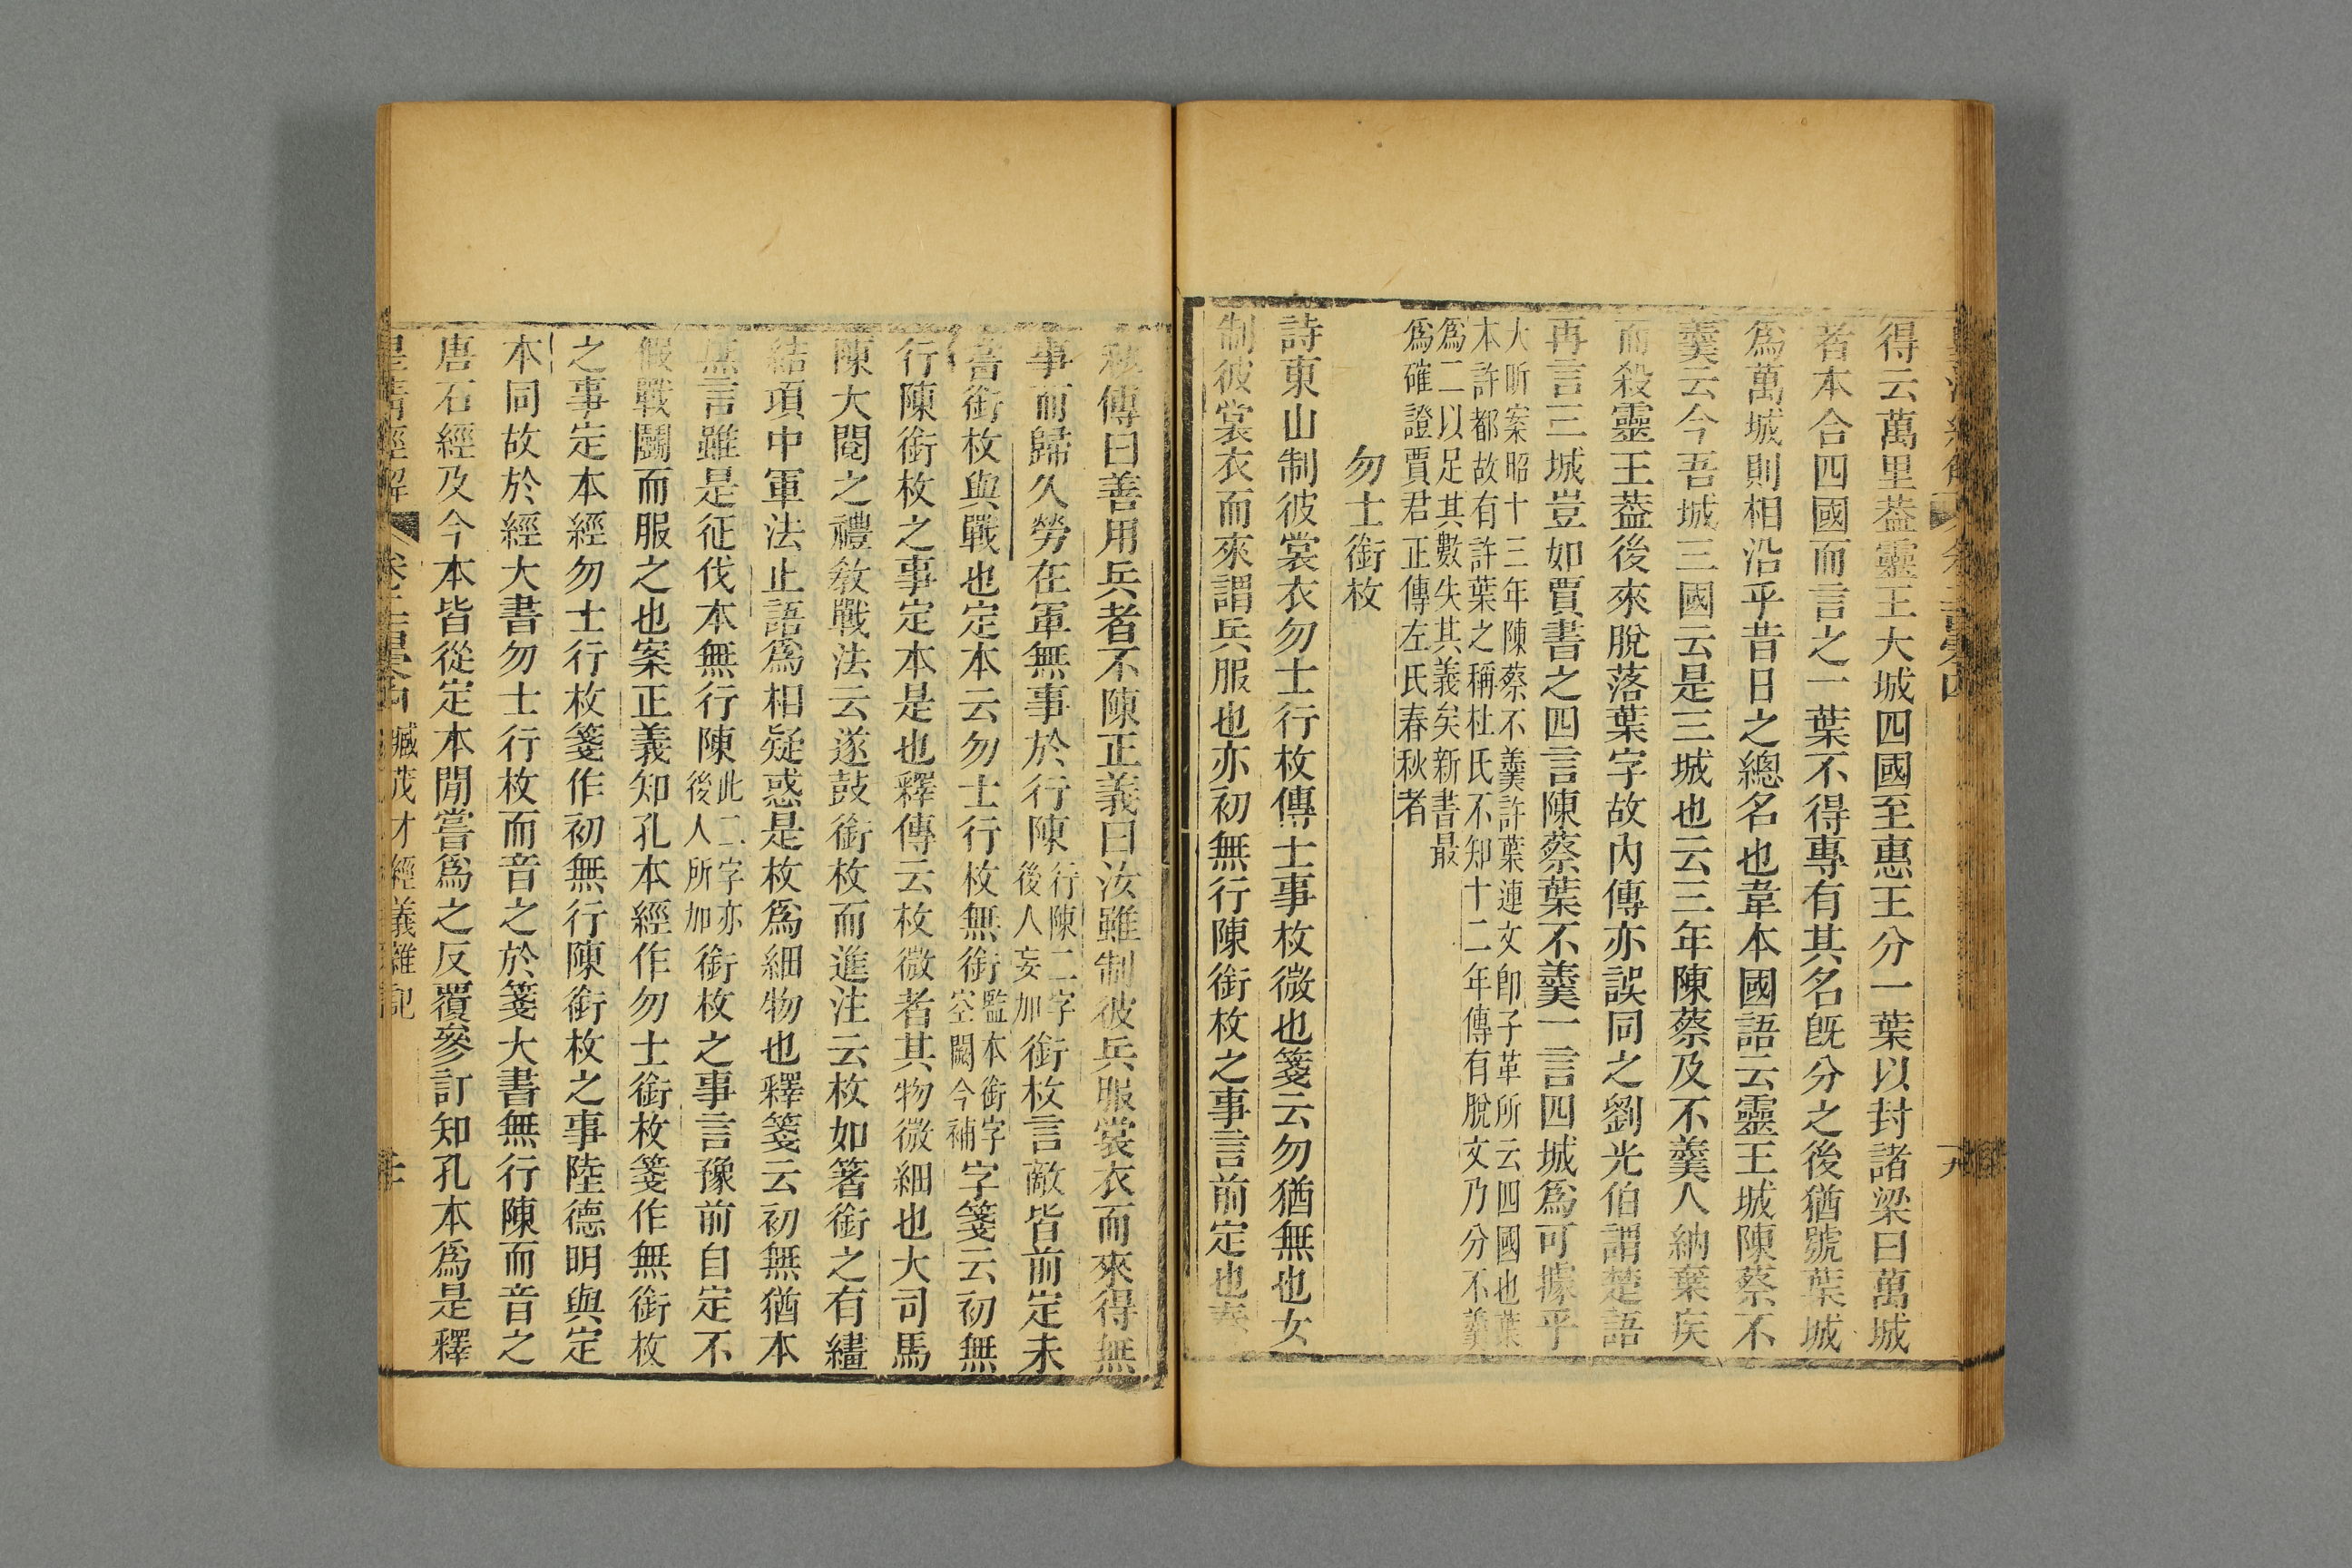 得云萬里葢靈王大城四國至惠王分一葉以封諸梁曰萬城
者本合四國而言之一葉不得專有其名旣分之後猶號葉城
爲萬城則相沿乎昔日之總名也韋本國語云靈王城陳蔡不
羹云今吾城三國云是三城也云三年陳蔡及不羹人納棄疾
而殺靈王葢後來脫落葉字故內傳亦誤同之劉光伯謂楚語
再言三城豈如賈書之四言陳蔡葉不羹一言四城爲可據乎
大昕案昭十三年陳蔡不羹許葉連文卽子革所云四國也葉
本許都故有許葉之稱杜氏不知十二年傳有脫文乃分不羹
爲二以足其數失其義矣新書最
爲確證賈君正傳左氏春秋者
勿士銜枚
詩東山制彼裳衣勿士行枚傳士事枚微也箋云勿猶無也女
制彼裳衣而來謂兵服也亦初無行陳銜枚之事言前定也春
秋傳曰善用兵者不陳正義曰汝雖制彼兵服裳衣而來得無
事而歸久勞在軍無事於行陳
行陳二字
後人妄加
銜枚言敵皆前定未
嘗銜枚與戰也定本云勿士行枚無銜
監本銜字
空闕今補
字箋云初無
行陳銜枚之事定本是也釋傳云枚微者其物微細也大司馬
陳大閱之禮敎戰法云遂鼓銜枚而進注云枚如箸銜之有繣
結項中軍法止語爲相疑惑是枚爲細物也釋箋云初無猶本
無言雖是征伐本無行陳
此二字亦
後人所加
銜枚之事言豫前自定不
假戰鬭而服之也案正義知孔本經作勿士銜枚箋作無銜枚
之事定本經勿士行枚箋作初無行陳銜枚之事陸德明與定
本同故於經大書勿士行枚而音之於箋大書無行陳而音之
唐石經及今本皆從定本閒嘗爲之反覆參訂知孔本爲是釋
皇淸經解
臧茂才經義雜記